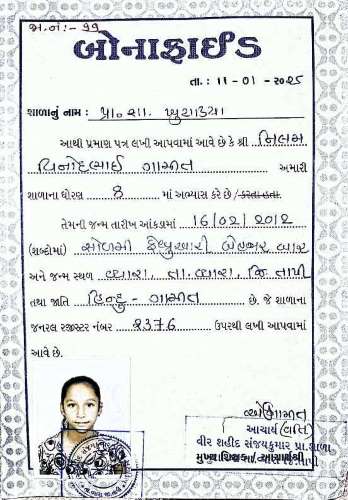 જ.નં:- ૧૧
બોનાફાઈડ
તા. : ૧૧-૦૧-૨૦૨૫
શાળાનું નામ : પ્રા. શા. ખુશાલપુરા
આથી પ્રમાણ પત્ર લખી આપવામાં આવે છે કે શ્રી નિલમ
વિનોદભાઈ ગામીત અમારી
શાળાના ધોરણ 8 માં અભ્યાસ કરે છે / કરતા હતા.
તેમની જન્મ તારીખ આંકડામાં 16/02/2012
(શબ્દોમાં) સોળમી ફેબ્રુઆરી બેહજાર બાર
અને જન્મ સ્થળ વ્યારા, તા. વ્યારા, જિ. તાપી
તથા જાતિ હિન્દુ - ગામીત છે. જે શાળાના
જનરલ રજીસ્ટર નંબર ૨376 ઉપરથી લખી આપવામાં
આવે છે.
આચાર્ય (વર્ગ)
વીર શહીદ સંજયકુમાર પ્રા.શાળા
મુખ્ય શિક્ષક / આચાર્યશ્રી